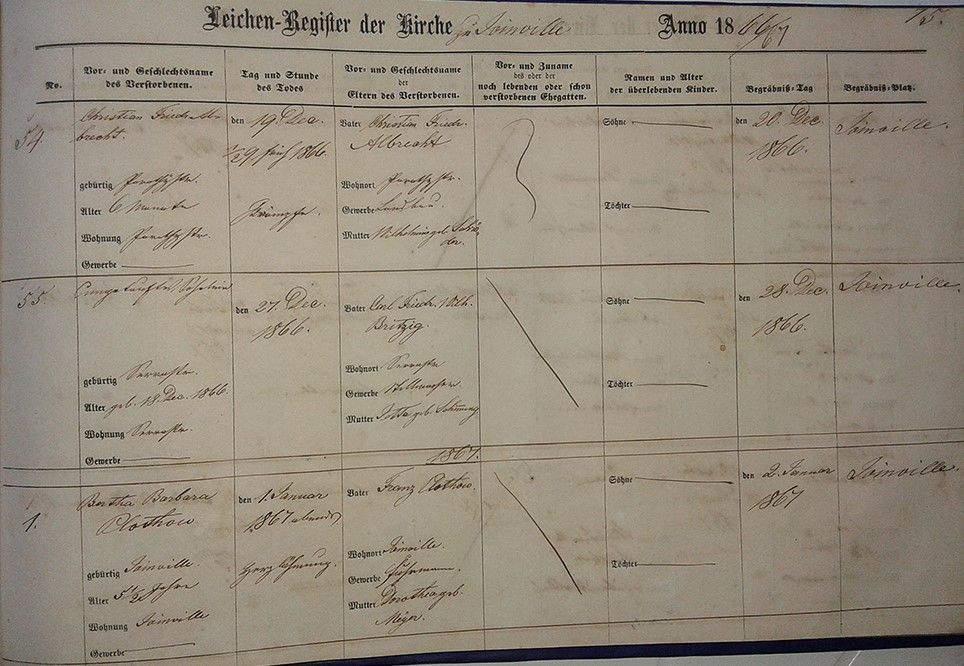 Leichen-Register der Kirche zu Joinville Anno 1866/67
15.
No.
Vor- und Geschlechtsname
des Verstorbenen.
Tag und Stunde
des Todes
Vor- und Geschlechtsname
der
Eltern des Verstorbenen.
Vor- und Zuname
des oder der
noch lebenden oder schon
verstorbenen Ehegatten.
Namen und Alter
der überlebenden Kinder.
Begräbniß-Tag
Begräbniß-Platz.
54.
Christian Friedr. Al-
brecht.
gebürtig
Alter 6 Monate
Wohnung
Gewerbe
den 19. Dec.
1/2 9 früh 1866.
Krämpfe.
Vater Christian Friedr.
Albrecht
Wohnort
Gewerbe Landbau.
Mutter Wilhelmine geb.
Söhne
Töchter
den 20. Dec.
1866.
Joinville.
55.
gebürtig Serrastr.
Alter geb. 18. Dec. 1866.
Wohnung Serrastr.
Gewerbe
den 27. Dec.
1866.
Vater Carl Friedr. Wilh.
Britzig.
Wohnort Serrastr.
Gewerbe
Mutter geb.
Söhne
Töchter
den 28. Dec.
1866.
Joinville.
1867.
1.
Bertha Barbara
Plothow
gebürtig Joinville.
Alter 5 1/2 Jahre
Wohnung Joinville
Gewerbe
den 1. Januar
1867 abends
Herzlähmung.
Vater Franz Plothow.
Wohnort Joinville.
Gewerbe Fuhrmann.
Mutter Dorothea geb.
Meyer.
Söhne
Töchter
den 2. Januar
1867
Joinville.